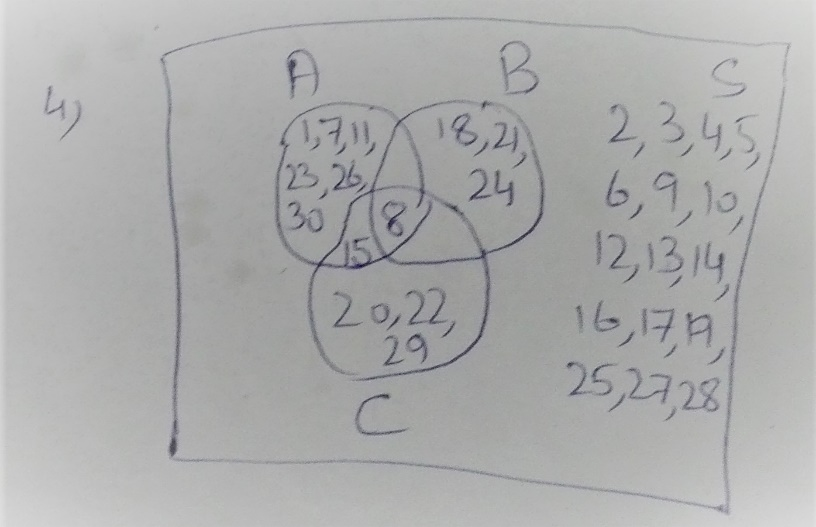 4)
A
B
S
1,7,11,
23,26,
30
15
8
18,21,
24
20,22,
29
C
2,3,4,5,
6,9,10,
12,13,14,
16,17,19,
25,27,28